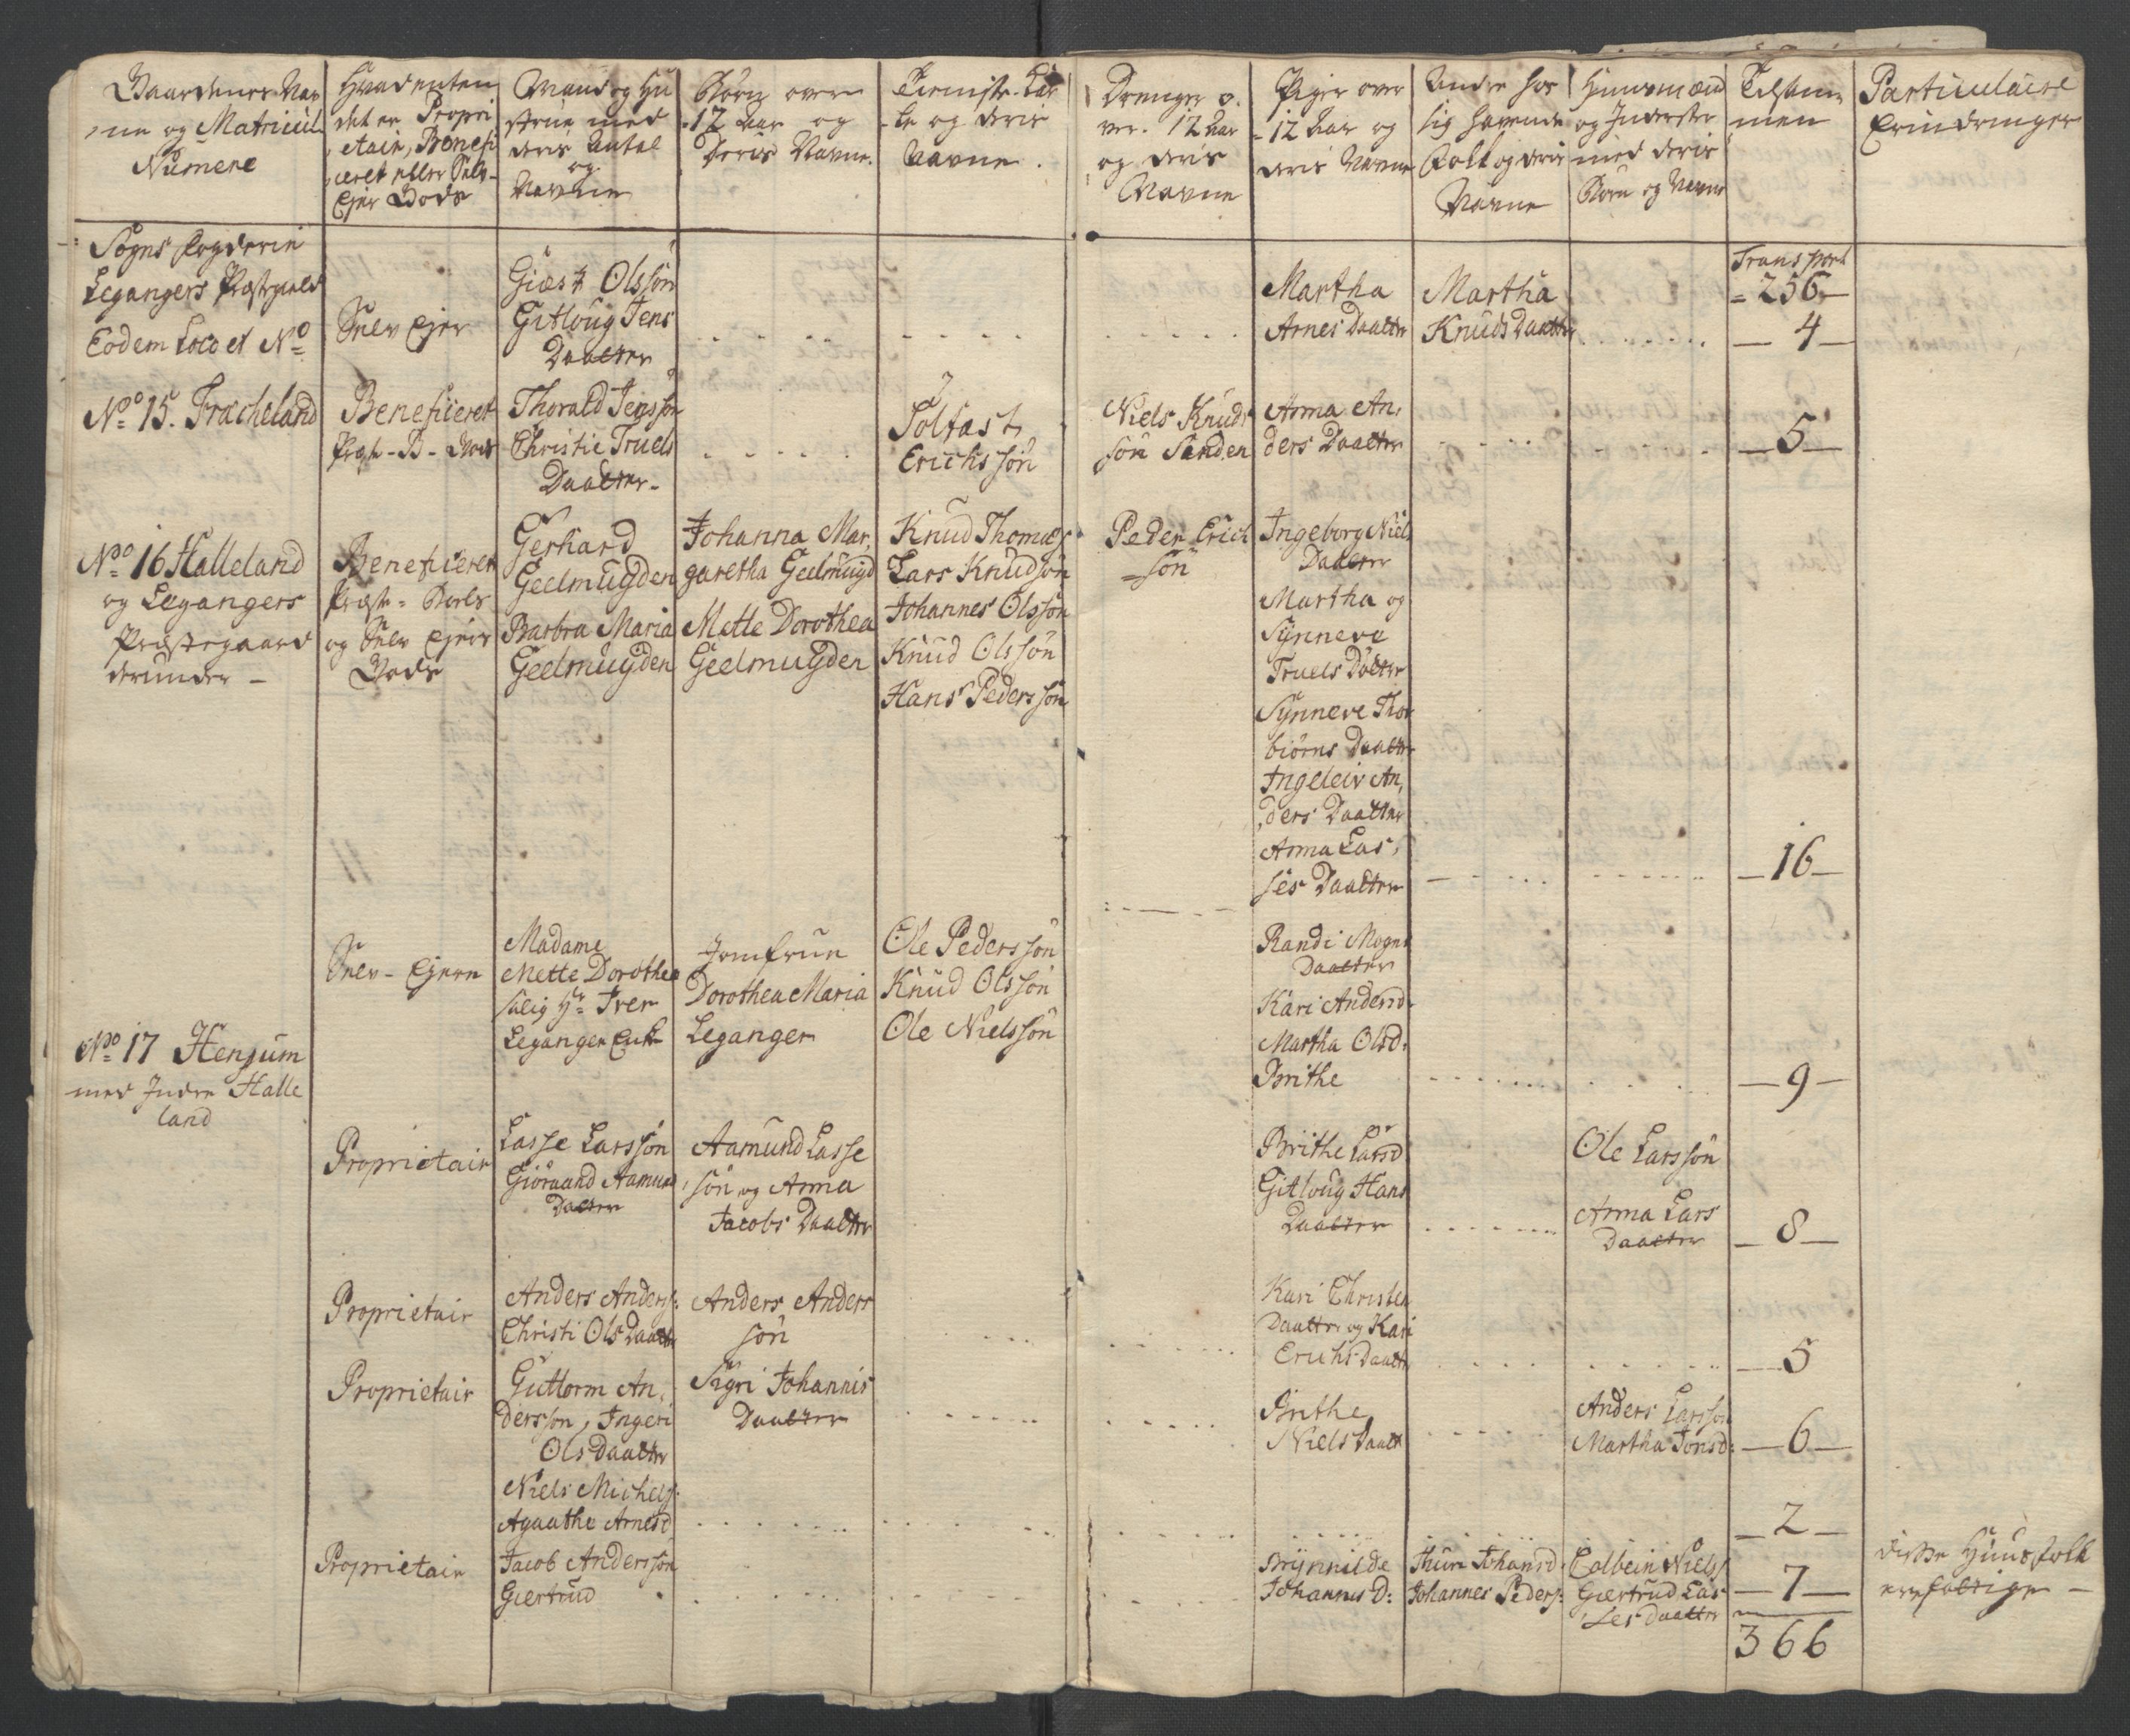 Gaardenes Nav
ne og Matricül
Numere
Hvad enten
det er Propri
etair, Benefi
ceret eller Selv-
Ejer Gods
Mand og Hu
strue med
deris Antal
og
Navne
Børn over
12 Aar og
Deris Navne.
Tieniste Kar
le og deris
Navne.
Drenger o.
ver 12 Aar
og deris
Navne
Piger over
12 Aar og
deris Navne
Andre hos
sig havende
Folk og deris
Navne
Huusmænd
og Inderster
med deris
Børn og Navne
Tilsam
men
Particulaire
Erindringer
Sogns fogderie
Legangers Præstegield
Eodem Loco et No
Selv Ejer
Giæst Olssön
Gitloüg Jens
Daatter
Martha
Arnes Daatter
Martha
Knuds Daatter
Transport
256
4
No 15. Fræcheland
Beneficeret
Præst-B-Gods
Thorald Jenssön
Christie Truels
Daatter
Tolfast
Erichssön
Niels Knuds
sön Sanden
Anna An,
ders Daatter
5
No 16 Halleland
og Legangers
Præstegaard
derunder
Beneficeret
Præste-Boels
og Selv Ejers
Gods
Gerhard
Geelmüyden
Barbra Maria
Geelmüyden
Johanna Mar,
garetha Geelmüyd
Mette Dorothea
Geelmuyden
Knud Thomæs
Lars Knudsön
Johannes Olssön
Knüd Olssön
Hans Pederssön
Peder Erich
sön
Ingeborg Niels
Daatter
Martha og
Synneve
Truels Döttre
Synneve Thor
biörns Daatter
Ingeleiv An,
ders Daatter
Anna Las,
ses Daatter
16
Selv-Ejere
Madame
Mette Dorothea
salig Hr Iver
Leganger Enke
Jomfrue
Dorothea Maria
Leganger
Ole Pederssön
Knüd Olssön
Ole Nielssön
Randi Mogns
Daatter
Kari Andersd.
Martha Olsd:
Brithe
9
No 17 Henjüm
med Indre Halle
land
Proprietair
Lasse Larssön
Giöraand Aamund
Datter
Aamünd Lasse
sön og Anna
Jacobs Daatter
Brithe Larsd
Gitloüg Hans
Daatter
Ole Larssön
Anna Lars
Daatter
8
Proprietair
Anders Anderss:
Christi Ols Daatter
Anders Anders
sön
Kari Christen
Daatter og Kari
Erichs Daatter
5
Proprietair
Guttorm An,
derssön, Ingeri
Ols Daatter
Sigri Johannis
Daatter
Brithe
Niels Daatt
Anders Larssön
Martha Jonsd:
6
Niels Michels:
Agaathe Arnesd
2
Proprietair
Jacob Anderssön
Giertrüd
Brynnilde
Johannes D:
Thüri Johansd.
Johannes Peders:
Colbein Niels
Giertrud Las
ses Daatter
7
disse Huusfolk
ere fattige
366